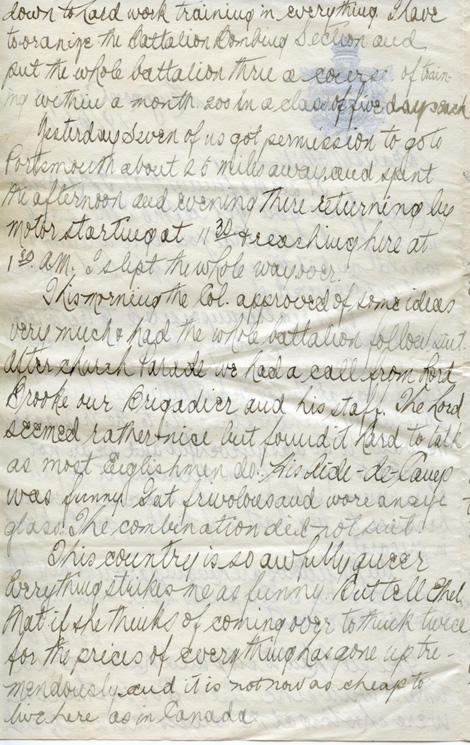 down to hard work training in everything. I have
to oranize the Battalion Bombing Section and
put the whole battalion thru a course of train-
ing within a month. 200 in a class of five days each
Yesterday Seven of us got permission to go to
Portsmouth about 26 miles away and spent
the afternoon and evening there returning by
motor starting at 11 30 & reaching here at
1 30 A.M. I slept the whole way over.
This morning the Col. approved of some ideas
very much & had the whole battalion follow suit.
After church Parade we had a call from Lord
Brooke our Brigadier and his staff. The Lord
seemed rather nice but found it hard to talk
as most Englishmen do! His Aide-de-Camp
was funny. Fat frivolous and wore an eye
glass. The combination did not suit.
This country is so awfully queer
Everything strikes me as funny. But tell Ethel
that if she thinks of coming over to think twice
for the prices of everything has gone up tre-
mendously and it is not now as cheap to
live here as in Canada